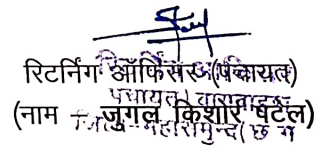 रिटर्निंग ऑफिसर (पंचायत)
(नाम - जुगल किशोर पटेल)